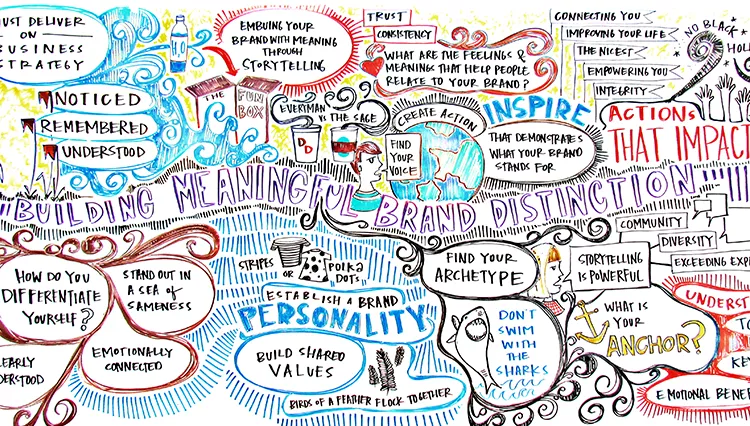 UST DELIVER
ON
USINESS
STRATEGY
H2O
EMBUING YOUR
BRAND WITH MEANING
THROUGH
STORYTELLING
TRUST
CONSISTENCY
WHAT ARE THE FEELINGS &
MEANINGS THAT HELP PEOPLE
RELATE TO YOUR BRAND?
CONNECTING YOU
IMPROVING YOUR LIFE
THE NICEST
EMPOWERING YOU
INTEGRITY
NO BLACK
HOL
NOTICED
REMEMBERED
UNDERSTOOD
THE
FUN
BOX
EVERYMAN
VS THE SAGE
DD
CREATE ACTION
FIND
YOUR
VOICE
INSPIRE
THAT DEMONSTRATES
WHAT YOUR BRAND
STANDS FOR
ACTIONS
THAT IMPAC
"BUILDING MEANINGFUL BRAND DISTINCTION"
HOW DO YOU
DIFFERENTIATE
YOURSELF?
STAND OUT IN
A SEA OF
SAMENESS
LEARLY
DERSTOOD
EMOTIONALLY
CONNECTED
STRIPES
OR
POLKA
DOTS
ESTABLISH A BRAND
PERSONALITY
BUILD SHARED
VALUES
BIRDS OF A FEATHER FLOCK TOGETHER
FIND YOUR
ARCHETYPE
DON'T
SWIM
WITH
THE
SHARKS
STORYTELLING
IS POWERFUL
COMMUNITY
DIVERSITY
EXCEEDING EXP
WHAT IS
YOUR
ANCHOR?
UNDERST
TO
KE
EMOTIONAL BENE